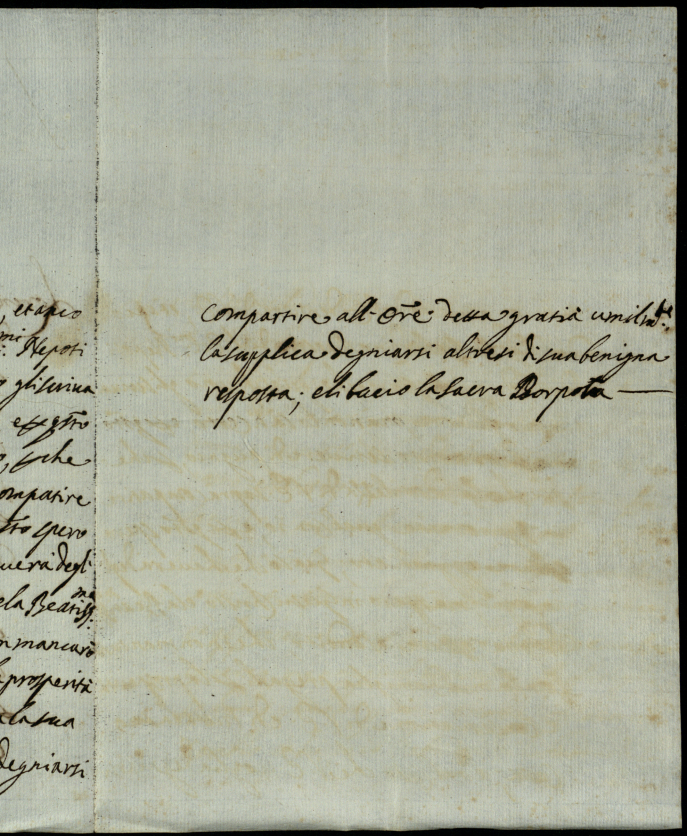 , et anco
mi: Nepoti
o gli scriva
e p qsto
o, e che
ompatire
sto spero
uerà degl
ela Beatiss:ma
n mancarò
prosperità
a la sua
degniarsi
compartire all- Ore: detta gratia umilmte:
la supplica degniarsi altresi di sua benigna
resposta; e li bacio la Sacra Porpora —